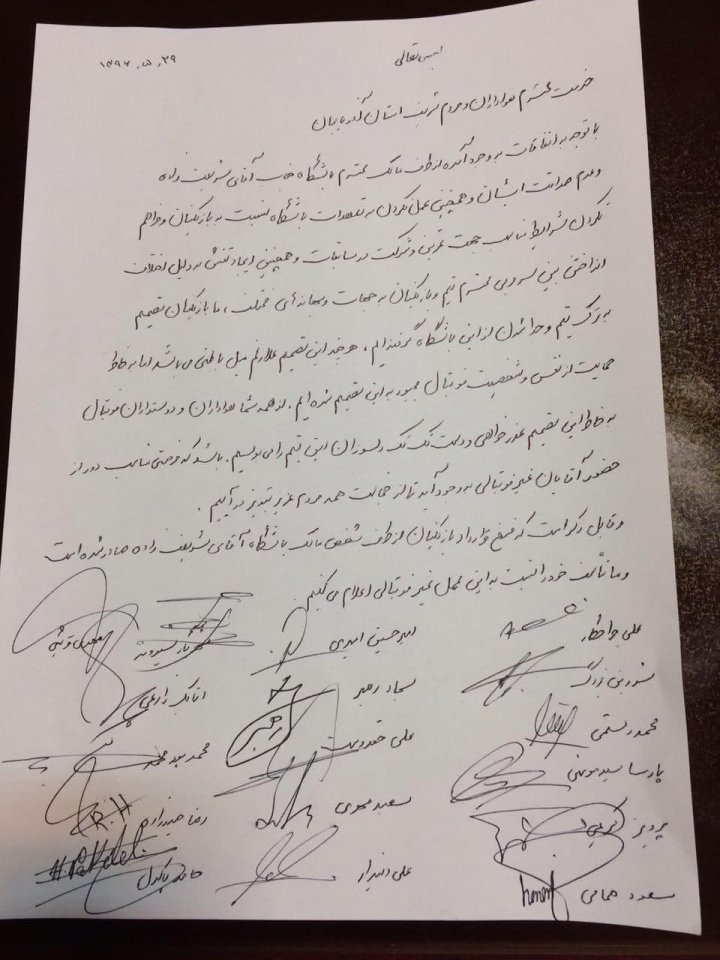 بسمه تعالی
۱۳۹۶.۵.۲۹
خدمت محترم هواداران و مردم شریف استان آذربایجان
با توجه به اتفاقات به وجود آمده از طرف مالک محترم باشگاه جناب آقای شریعت زاده
و عدم صداقت ایشان و همچنین عمل نکردن به تعهدات باشگاه نسبت به بازیکنان و فراهم
نکردن شرایط مناسب جهت تمرین و شرکت در مسابقات و همچنین ایجاد تنش به دلیل اختلاف
انداختن بین سرمربی محترم تیم و بازیکنان به جهات و بهانه های مختلف، ما بازیکنان تصمیم
به ترک تیم و جدا شدن از این باشگاه گرفته ایم. هر چند این تصمیم علارغم میل باطنی می باشد اما به خاطر
حمایت از نفس و شخصیت فوتبال مجبور به این تصمیم شده ایم. از همه شما هواداران و دوستداران فوتبال
به خاطر این تصمیم عذرخواهی و دست تک تک دلسوزان این تیم را می بوسیم. باشد که فرصتی مناسب دور از
حضور آقایان غیر فوتبالی به وجود آید تا از خجالت همه مردم عزیز تبریز در آییم.
و قابل ذکر است که فسخ قرارداد بازیکنان از طرف شخص مالک باشگاه آقای شریعت زاده صادر شده است
و ما تأسف خود را نسبت به این عمل غیر فوتبالی اعلام می کنیم.
علی جافکار امیرحسین امیری
سجاد رهبر اتابک زارعی
محمد رستمی علی حقدوست محمد
پارسا سید موسی
پرویز کریمی سعید محمدی رضا
مسعود همامی علی دیندار حامد پاکدل
رهبر
R.H
H Pakdel
homami